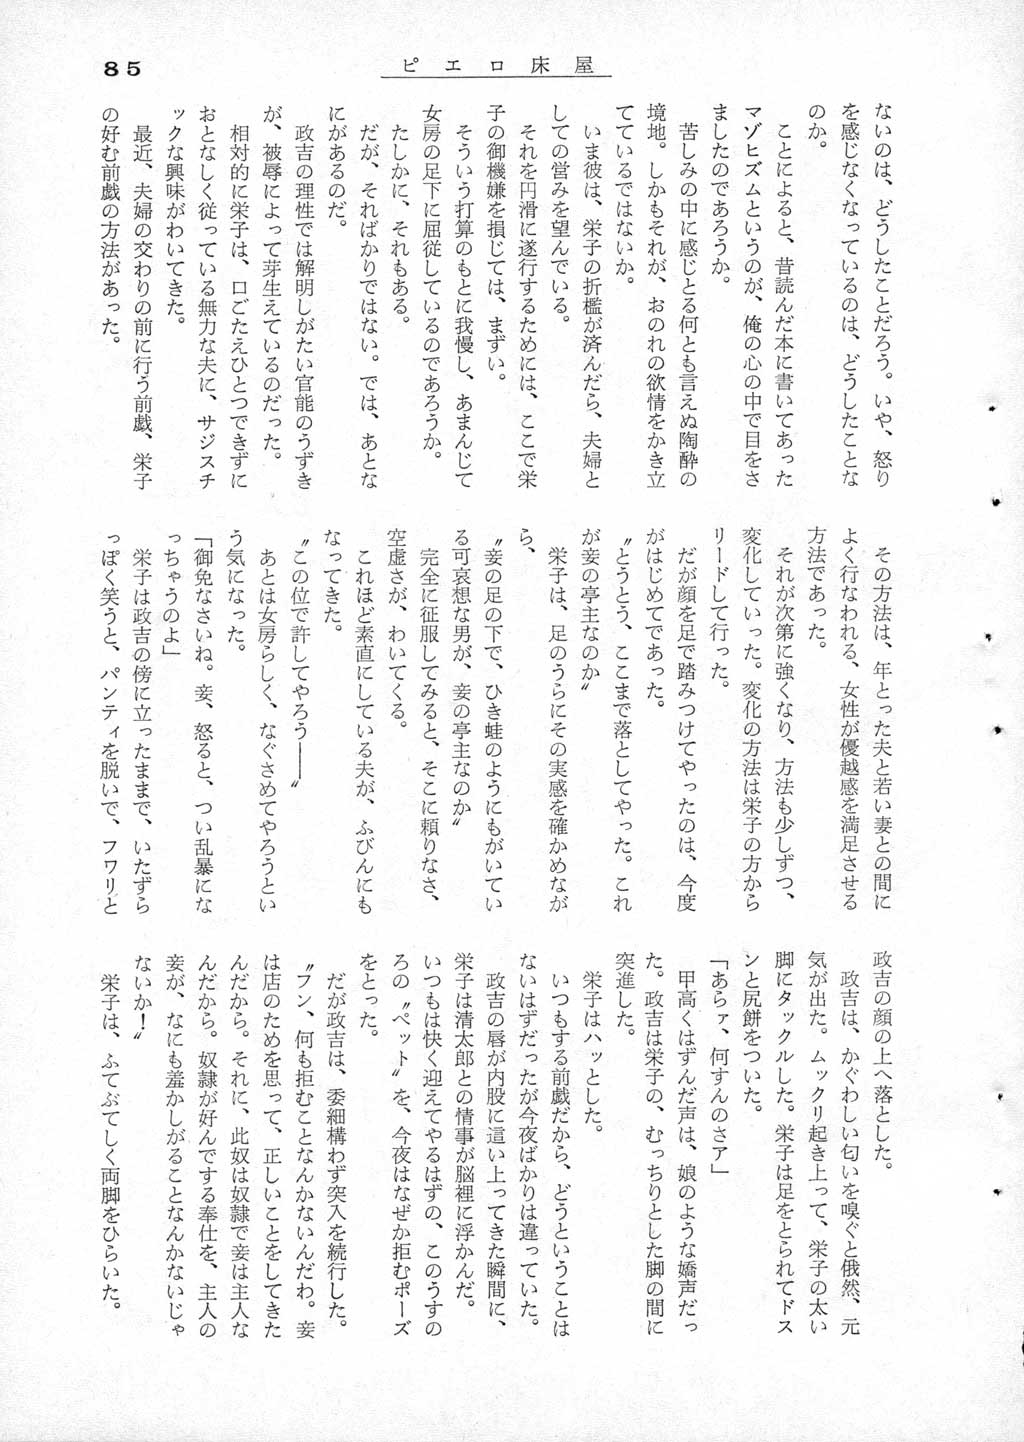 85
ピエロ床屋
ないのは、どうしたことだろう。いや、怒り
を感じなくなっているのは、どうしたことな
のか。
ことによると、昔読んだ本に書いてあった
マゾヒズムというのが、俺の心の中で目をさ
ましたのであろうか。
苦しみの中に感じとる何とも言えぬ陶酔の
境地。しかもそれが、おのれの欲情をかき立
てているではないか。
いま彼は、栄子の折檻が済んだら、夫婦と
しての営みを望んでいる。
それを円滑に遂行するためには、ここで栄
子の御機嫌を損じては、まずい。
そういう打算のもとに我慢し、あまんじて
女房の足下に屈従しているのであろうか。
たしかに、それもある。
だが、そればかりではない。では、あとな
にがあるのだ。
政吉の理性では解明しがたい官能のうずき
が、被辱によって芽生えているのだった。
相対的に栄子は、口ごたえひとつできずに
おとなしく従っている無力な夫に、サジスチ
ックな興味がわいてきた。
最近、夫婦の交わりの前に行う前戯、栄子
の好む前戯の方法があった。
その方法は、年とった夫と若い妻との間に
よく行なわれる、女性が優越感を満足させる
方法であった。
それが次第に強くなり、方法も少しずつ、
変化していった。変化の方法は栄子の方から
リードして行った。
だが顔を足で踏みつけてやったのは、今度
がはじめてであった。
〝とうとう、ここまで落としてやった。これ
が妾の亭主なのか〟
栄子は、足のうらにその実感を確かめなが
ら、
〝妾の足の下で、ひき蛙のようにもがいてい
る可哀想な男が、妾の亭主なのか〟
完全に征服してみると、そこに頼りなさ、
空虚さが、わいてくる。
これほど素直にしている夫が、ふびんにも
なってきた。
〝この位で許してやろう――〟
あとは女房らしく、なぐさめてやろうとい
う気になった。
「御免なさいね。妾、怒ると、つい乱暴にな
っちゃうのよ」
栄子は政吉の傍に立ったままで、いたずら
っぽく笑うと、パンティを脱いで、フワリと
政吉の顔の上へ落とした。
政吉は、かぐわしい匂いを嗅ぐと俄然、元
気が出た。ムックリ起き上って、栄子の太い
脚にタックルした。栄子は足をとられてドス
ンと尻餅をついた。
「あらァ、何すんのさア」
甲高くはずんだ声は、娘のような嬌声だっ
た。政吉は栄子の、むっちりとした脚の間に
突進した。
栄子はハッとした。
いつもする前戯だから、どうということは
ないはずだったが今夜ばかりは違っていた。
政吉の唇が内股に這い上ってきた瞬間に、
栄子は清太郎との情事が脳裡に浮かんだ。
いつもは快く迎えてやるはずの、このうすの
ろの〝ペット〟を、今夜はなぜか拒むポーズ
をとった。
だが政吉は、委細構わず突入を続行した。
〝フン、何も拒むことなんかないんだわ。妾
は店のためを思って、正しいことをしてきた
んだから。それに、此奴は奴隷で妾は主人な
んだから。奴隷が好んでする奉仕を、主人の
妾が、なにも羞かしがることなんかないじゃ
ないか！〟
栄子は、ふてぶてしく両脚をひらいた。